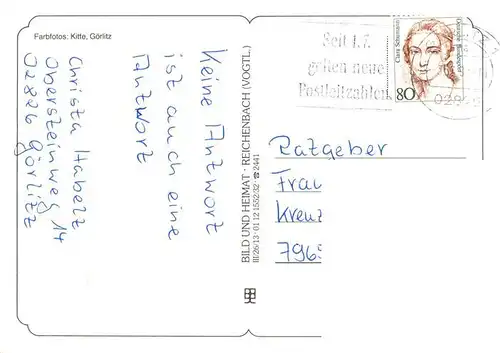 Farbfotos: Kitte, Görlitz
Keine Antwort
ist auch eine
Antwort
Christa Habelt
Obersteinweg 14
02826 Görlitz
BILD UND HEIMAT · REICHENBACH (VOGTL.)
III/26/13 · 01 12 1552/32 ☎ 2441
Seit 1.7.
gelten neue
Postleitzahlen
Clara Schumann
Deutsche Bundespost
80
Ratgeber
Frau
Kreuz
796